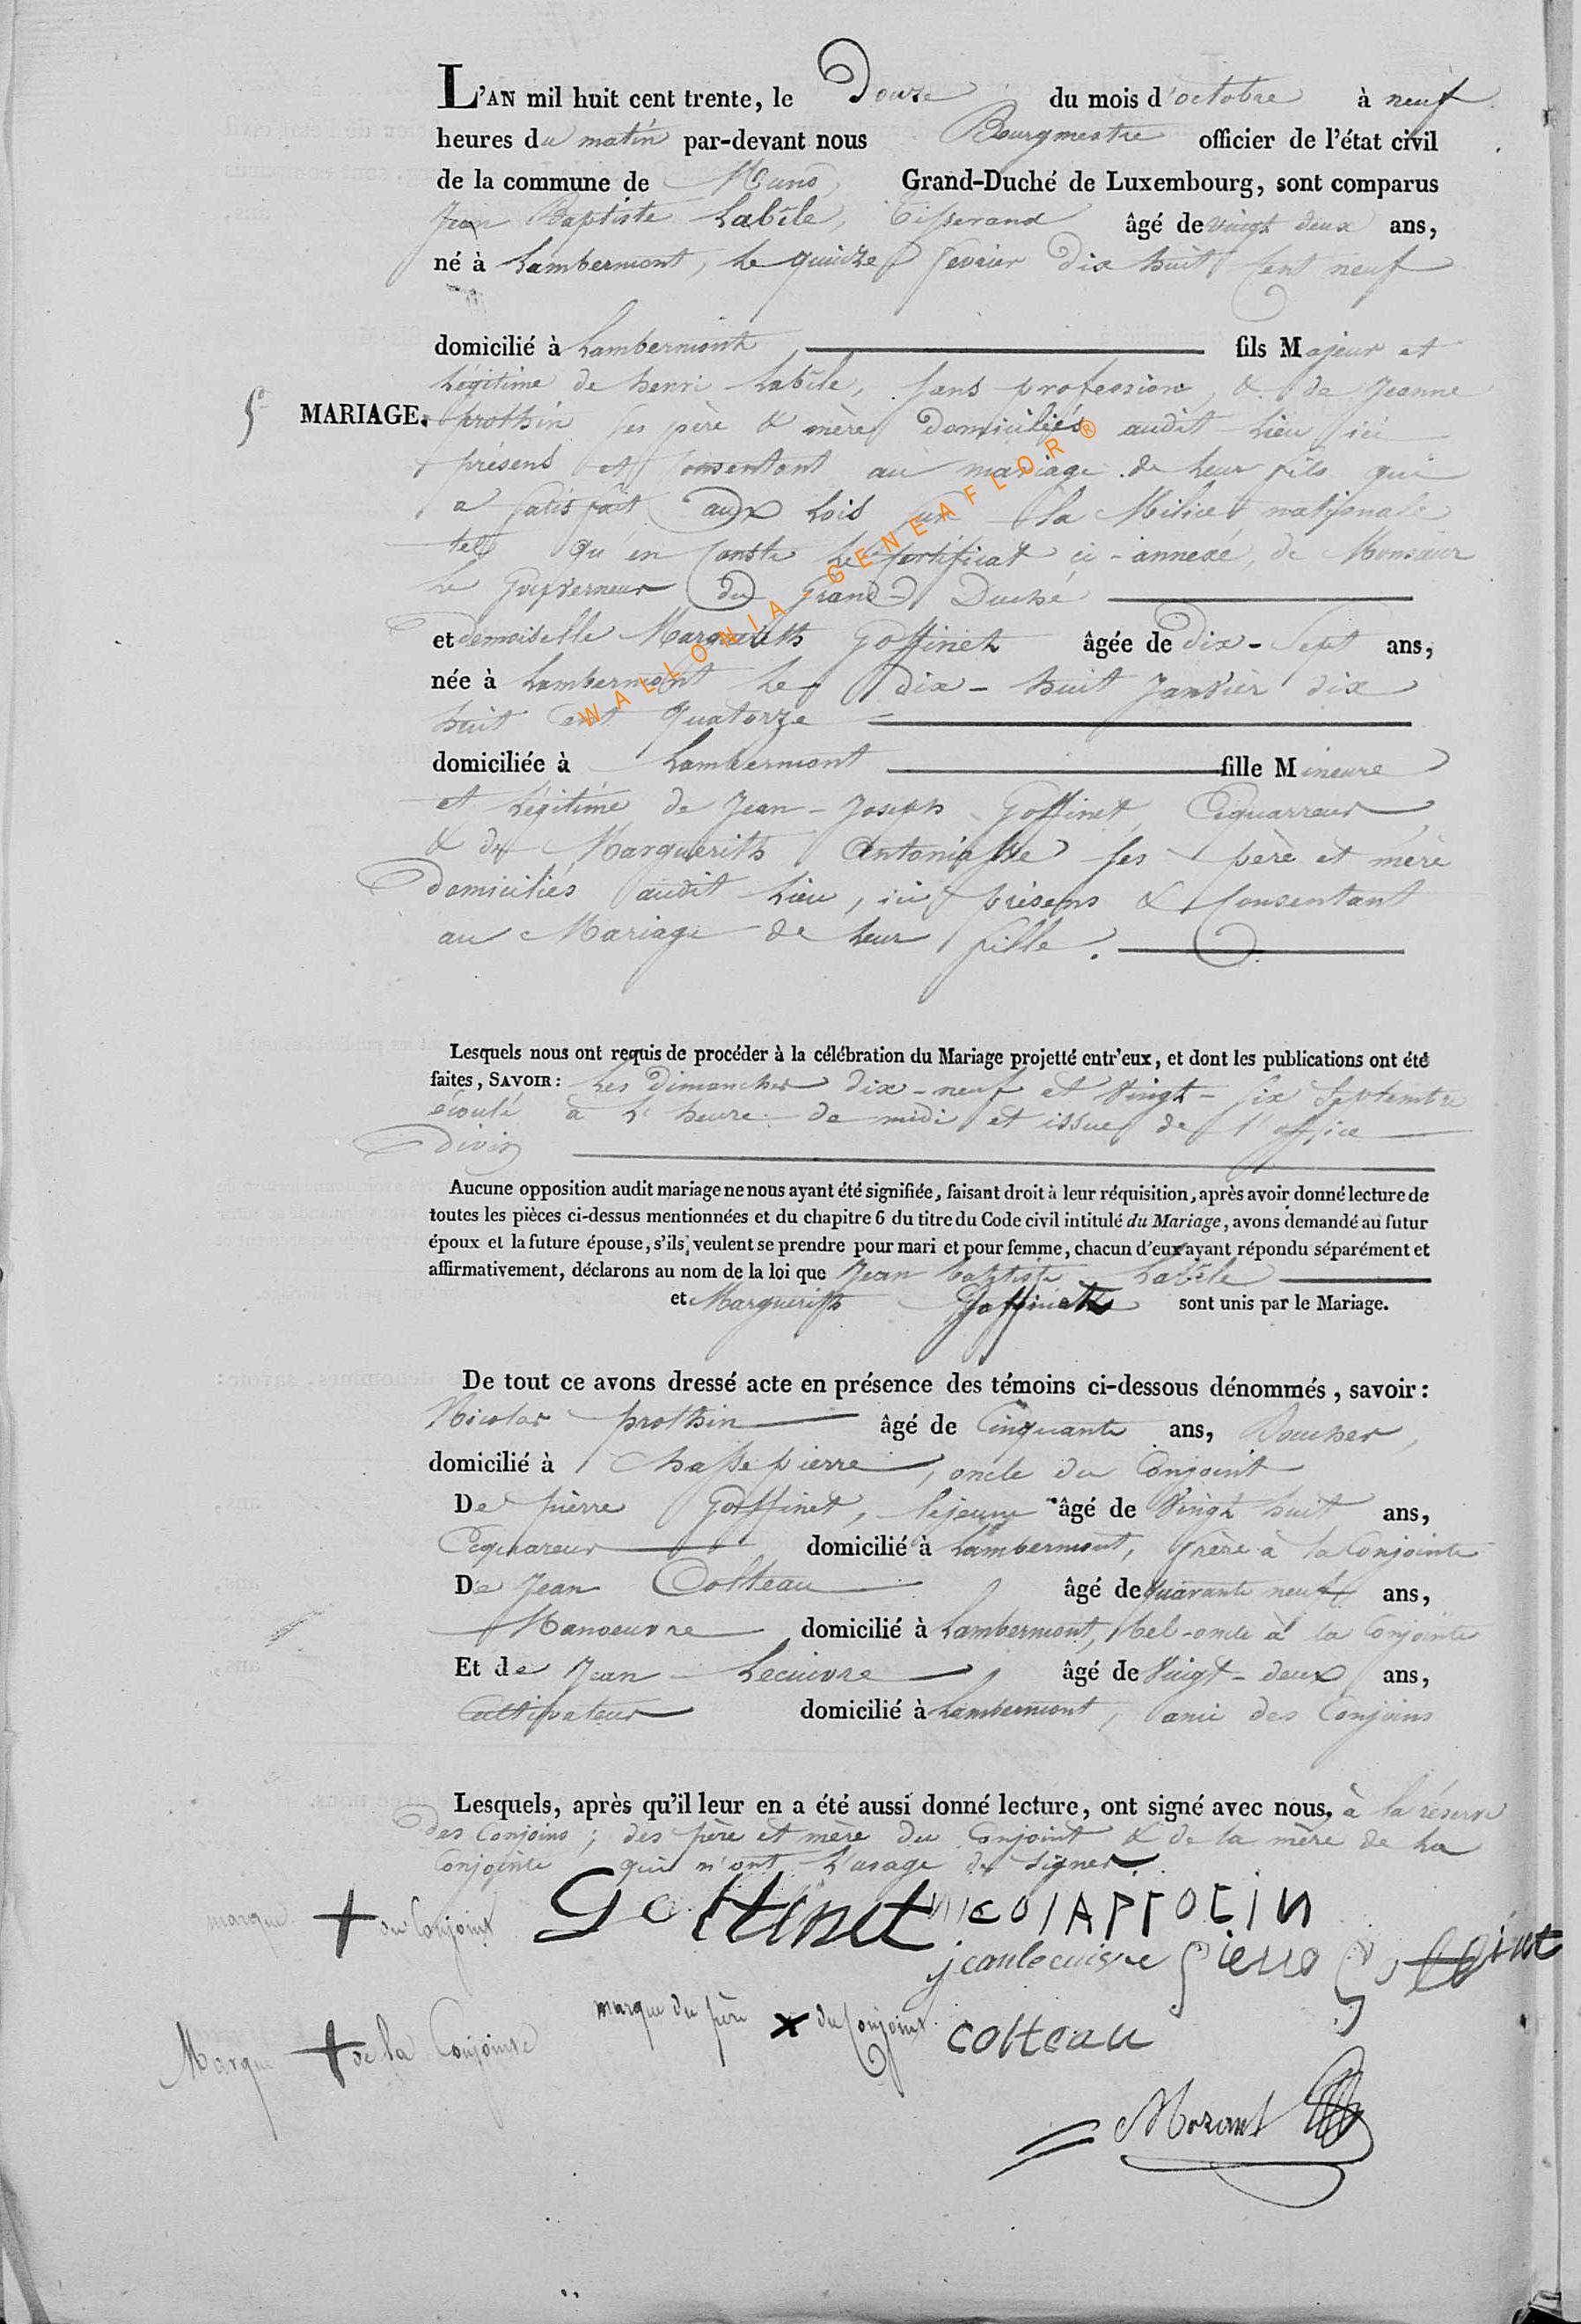 L'AN mil huit cent trente, le Douze du mois d'octobre à neuf
heures du matin par-devant nous Bourgmestre officier de l'état civil
de la commune de Muno, Grand-Duché de Luxembourg, sont comparus
Jean Baptiste Labèle, Tisserand âgé de vingt deux ans,
né à Lambermont, le quinze fevrier dix huit Cent neuf
domicilié à Lambermont fils Majeur et
Légitime de henri Labèle, sans profession, & de Jeanne
5e MARIAGE. prothin ses père & mère Domiciliés audit Lieu ici
présens et Consentant au mariage de leur fils qui
a satisfait aux Lois sur la Milice nationale
tel qu'en Conste le Certificat ci-annexé, de Monsieur
le Gouverneur du Grand Duché
et demoiselle Marguerith Goffinet âgée de Dix-Sept ans,
née à Lambermont le dix-huit Janvier dix
huit Cent Quatorze
domiciliée à Lambermont fille Mineure
et Légitime de Jean-Joseph Goffinet, Equarreur
& de Marguerith Antoniasse ses père et mère
Domiciliés audit Lieu, ici présens & Consentant
au Mariage de leur fille.
Lesquels nous ont requis de procéder à la célébration du Mariage projetté entr'eux, et dont les publications ont été
faites, SAVOIR: Les Dimanches dix-neuf et Vingt-six Septembre
écoulé à L'heure de midi et issue de l'office
Divin
Aucune opposition audit mariage ne nous ayant été signifiée, faisant droit à leur réquisition, après avoir donné lecture de
toutes les pièces ci-dessus mentionnées et du chapitre 6 du titre du Code civil intitulé du Mariage, avons demandé au futur
époux et la future épouse, s'ils veulent se prendre pour mari et pour femme, chacun d'eux ayant répondu séparément et
affirmativement, déclarons au nom de la loi que Jean baptiste Labèle
et Marguerith Goffineth sont unis par le Mariage.
De tout ce avons dressé acte en présence des témoins ci-dessous dénommés, savoir:
Nicolas prothin âgé de Cinquante ans,
domicilié à Chassepierre, oncle du Conjoint
De pierre Goffinet, lejeune âgé de Vingt huit ans,
Equareur domicilié à Lambermont, frère à la Conjointe
De Jean Colteau âgé de quarante neuf ans,
Manoeuvre domicilié à Lambermont, bel-oncle à la Conjointe
Et de Jean Lecuivre âgé de Vingt-deux ans,
Cultivateur domicilié à Lambermont, ami des Conjoins
Lesquels, après qu'il leur en a été aussi donné lecture, ont signé avec nous, à la réserve
des Conjoins; des père et mère du Conjoint & de la mère de la
Conjointe qui n'ont L'usage de Signer.
marque + du Conjoint Goffinet nicolAprotin
jeanlecuivre pierre Goffinet
Marque + de la Conjointe marque du père x du Conjoint colteau
Morant
WALLONIA - GENEAFLOR ®